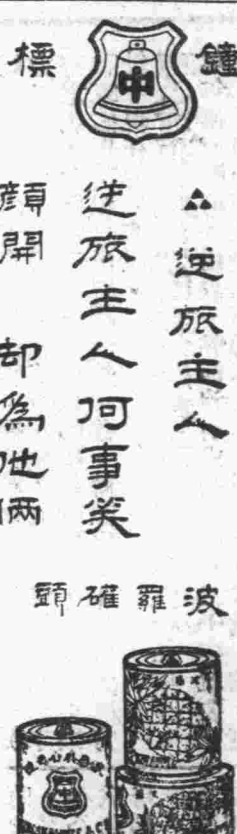 鐘中標
逆旅主人
逆旅主人何事笑
顏開 却為他倆
波羅礶頭